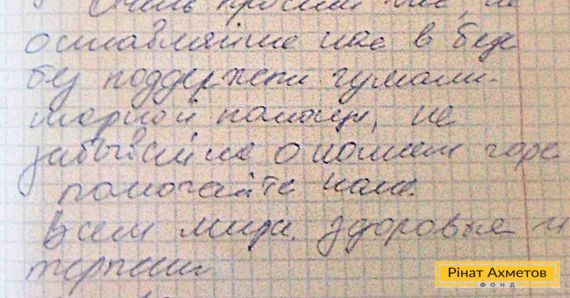 Очень просим вас, не
оставляйте нас в беде
без поддержки гумани-
тарной помощи, не
забывайте о нашем горе
помогайте нам.
Всем мира, здоровья и
терпения
Рінат Ахметов
ФОНД